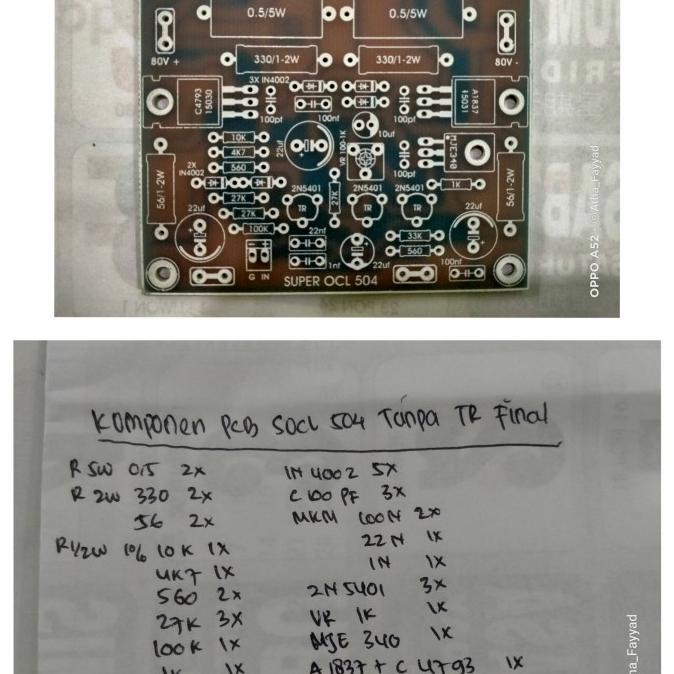 0.5/5W 0.5/5W
80V + 330/1-2W 330/1-2W 80V -
3X IN4002
C4793 15030 100pf 100nf 100pf A1837 15031
10K 22uf 10uf
4K7 VR 100-1K MJE340
560 100pf
2X IN4002
56/1-2W 2N5401 2N5401 1K 56/1-2W
27K 27K TR TR TR
22uf 27K 22uf
100K 22nf 33K
560
G IN 1nf 22uf 100nf
SUPER OCL 504
OPPO A52 Atha_Fayyad
Komponen PCB SOCL 504 Tanpa TR Final
R 5W 0,5 2x IN 4002 5x
R 2W 330 2x C 100 PF 3x
56 2x MKM 100N 2x
R1/2W 1% 10K 1x 22N 1x
4K7 1x 1N 1x
560 2x 2N5401 3x
27K 3x VR 1K 1x
100K 1x MJE 340 1x
1K 1x A1837 + C 4793 1x
ha_Fayyad